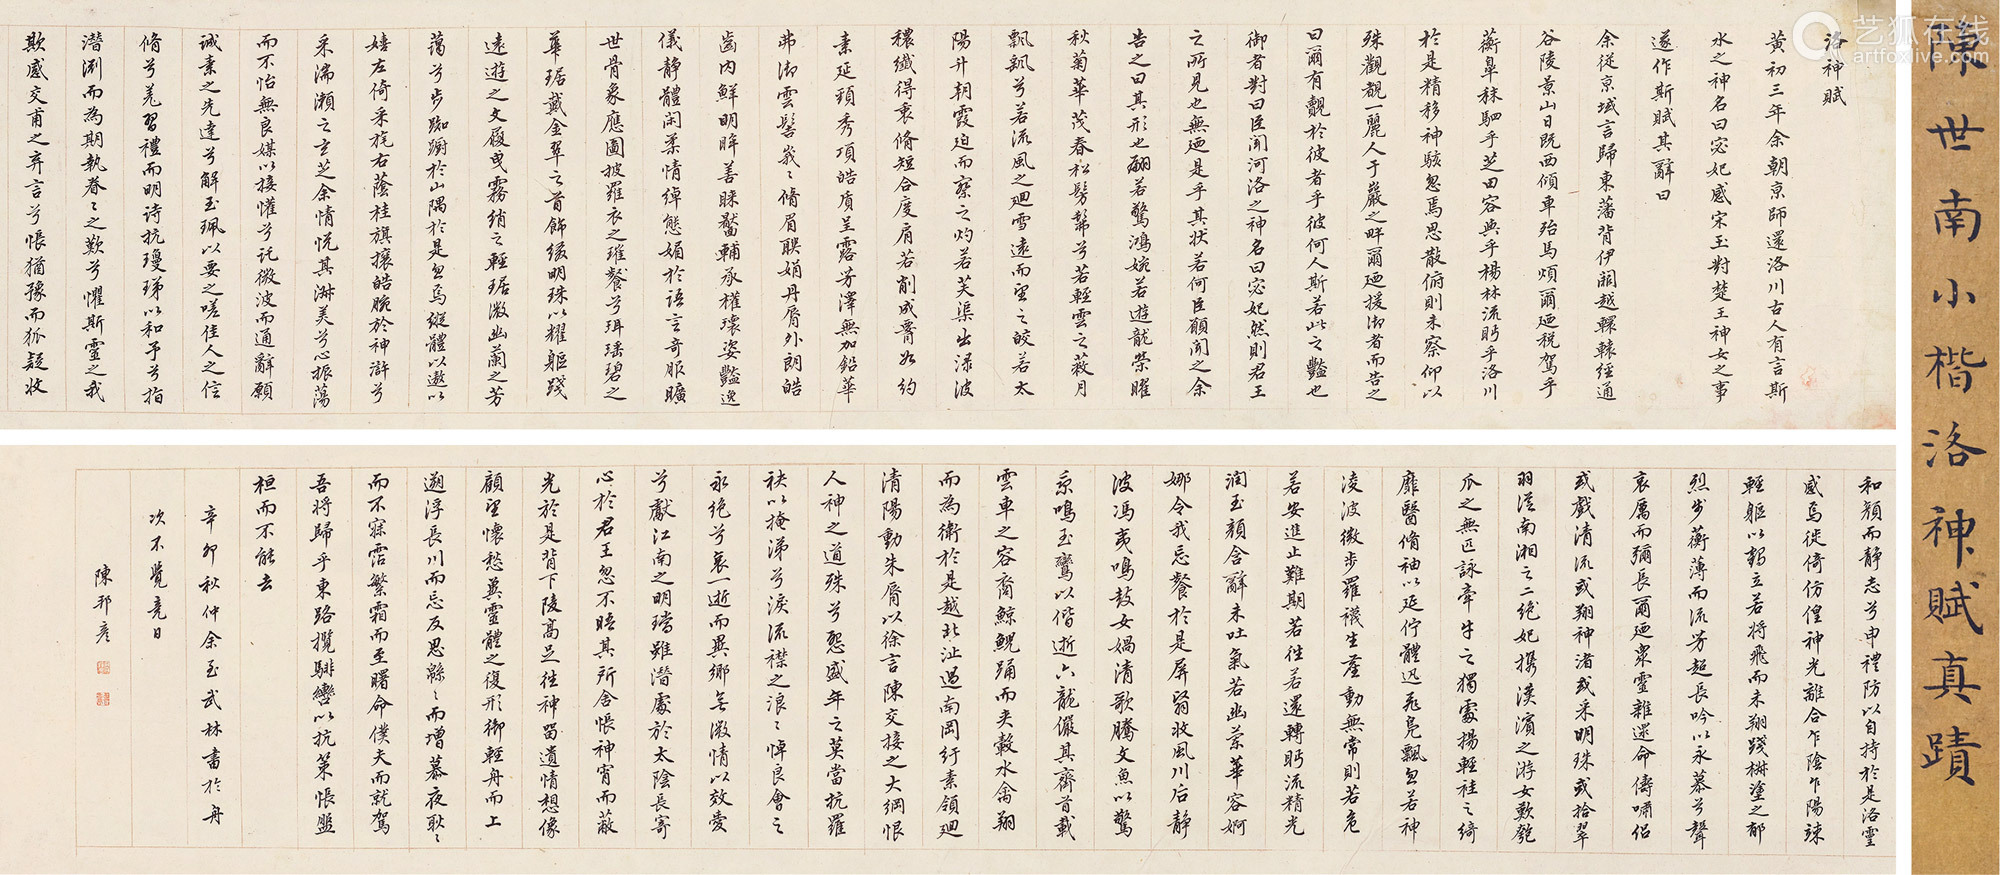 陳世南小楷洛神賦真蹟
艺狐在线
artfoxlive.com
洛神賦
黃初三年余朝京師還洛川古人有言斯
水之神名曰宓妃感宋玉對楚王神女之事
遂作斯賦其辭曰
余從京域言歸東藩背伊闕越轘轅經通
谷陵景山日既西傾車殆馬煩爾迺稅駕乎
蘅皐秣駟乎芝田容與乎楊林流眄乎洛川
於是精移神駭忽焉思散俯則未察仰以
殊觀覩一麗人于巖之畔爾迺援御者而告之
曰爾有覿於彼者乎彼何人斯若此之豔也
御者對曰臣聞河洛之神名曰宓妃然則君王
之所見也無迺是乎其狀若何臣願聞之余
告之曰其形也翩若驚鴻婉若遊龍榮曜
秋菊華茂春松髣髴兮若輕雲之蔽月
飄颻兮若流風之迴雪遠而望之皎若太
陽升朝霞迫而察之灼若芙渠出淥波
穠纖得衷脩短合度肩若削成腰如約
素延頸秀項皓質呈露芳澤無加鉛華
弗御雲髻峩〻脩眉聯娟丹脣外朗皓
齒內鮮明眸善睞靨輔承權瓌姿豔逸
儀静體閑柔情綽態媚於語言奇服曠
世骨象應圖披羅衣之璀粲兮珥瑤碧之
華琚戴金翠之首飾綴明珠以耀軀踐
遠遊之文履曳霧綃之輕裾微幽蘭之芳
藹兮步踟蹰於山隅於是忽焉縱體以遨以
嬉左倚采旄右蔭桂旗攘皓腕於神滸兮
采湍瀨之玄芝余情悅其淑美兮心振蕩
而不怡無良媒以接懽兮託微波而通辭願
誠素之先達兮解玉珮以要之嗟佳人之信
脩兮羌習禮而明詩抗瓊珶以和予兮指
潛淵而為期執眷〻之款兮懼斯靈之我
欺感交甫之弃言兮悵猶豫而狐疑收
和顏而靜志兮申禮防以自持於是洛靈
感焉徙倚仿偟神光離合乍陰乍陽竦
輕軀以鶴立若將飛而未翔踐椒塗之郁
烈步蘅薄而流芳超長吟以永慕兮聲
哀厲而彌長爾迺衆靈雜遝命儔嘯侶
或戲清流或翔神渚或采明珠或拾翠
羽從南湘之二妃攜漢濱之游女歎匏
瓜之無匹詠牽牛之獨處揚輕袿之綺
靡翳脩袖以延佇體迅飛鳧飄忽若神
淩波微步羅襪生塵動無常則若危
若安進止難期若往若還轉眄流精光
潤玉顏含辭未吐氣若幽蘭華容婀
娜令我忘餐於是屏翳收風川后靜
波馮夷鳴鼓女媧清歌騰文魚以驚
乘鳴玉鸞以偕逝六龍儼其齊首載
雲車之容裔鯨鯢踊而夾轂水禽翔
而為衛於是越北沚過南岡紆素領迴
清陽動朱脣以徐言陳交接之大綱恨
人神之道殊兮怨盛年之莫當抗羅
袂以掩涕兮淚流襟之浪〻悼良會之
永絕兮哀一逝而異鄉無微情以效愛
兮獻江南之明璫雖潛處於太陰長寄
心於君王忽不晤其所舍悵神宵而蔽
光於是背下陵高足往神留遺情想像
顧望懷愁冀靈體之復形御輕舟而上
遡浮長川而忘反思緜〻而增慕夜耿〻
而不寐霑繁霜而至曙命僕夫而就駕
吾將歸乎東路攬騑轡以抗策悵盤
桓而不能去
辛卯秋仲余至武林書於舟
次不覺竟日
陳邦彥